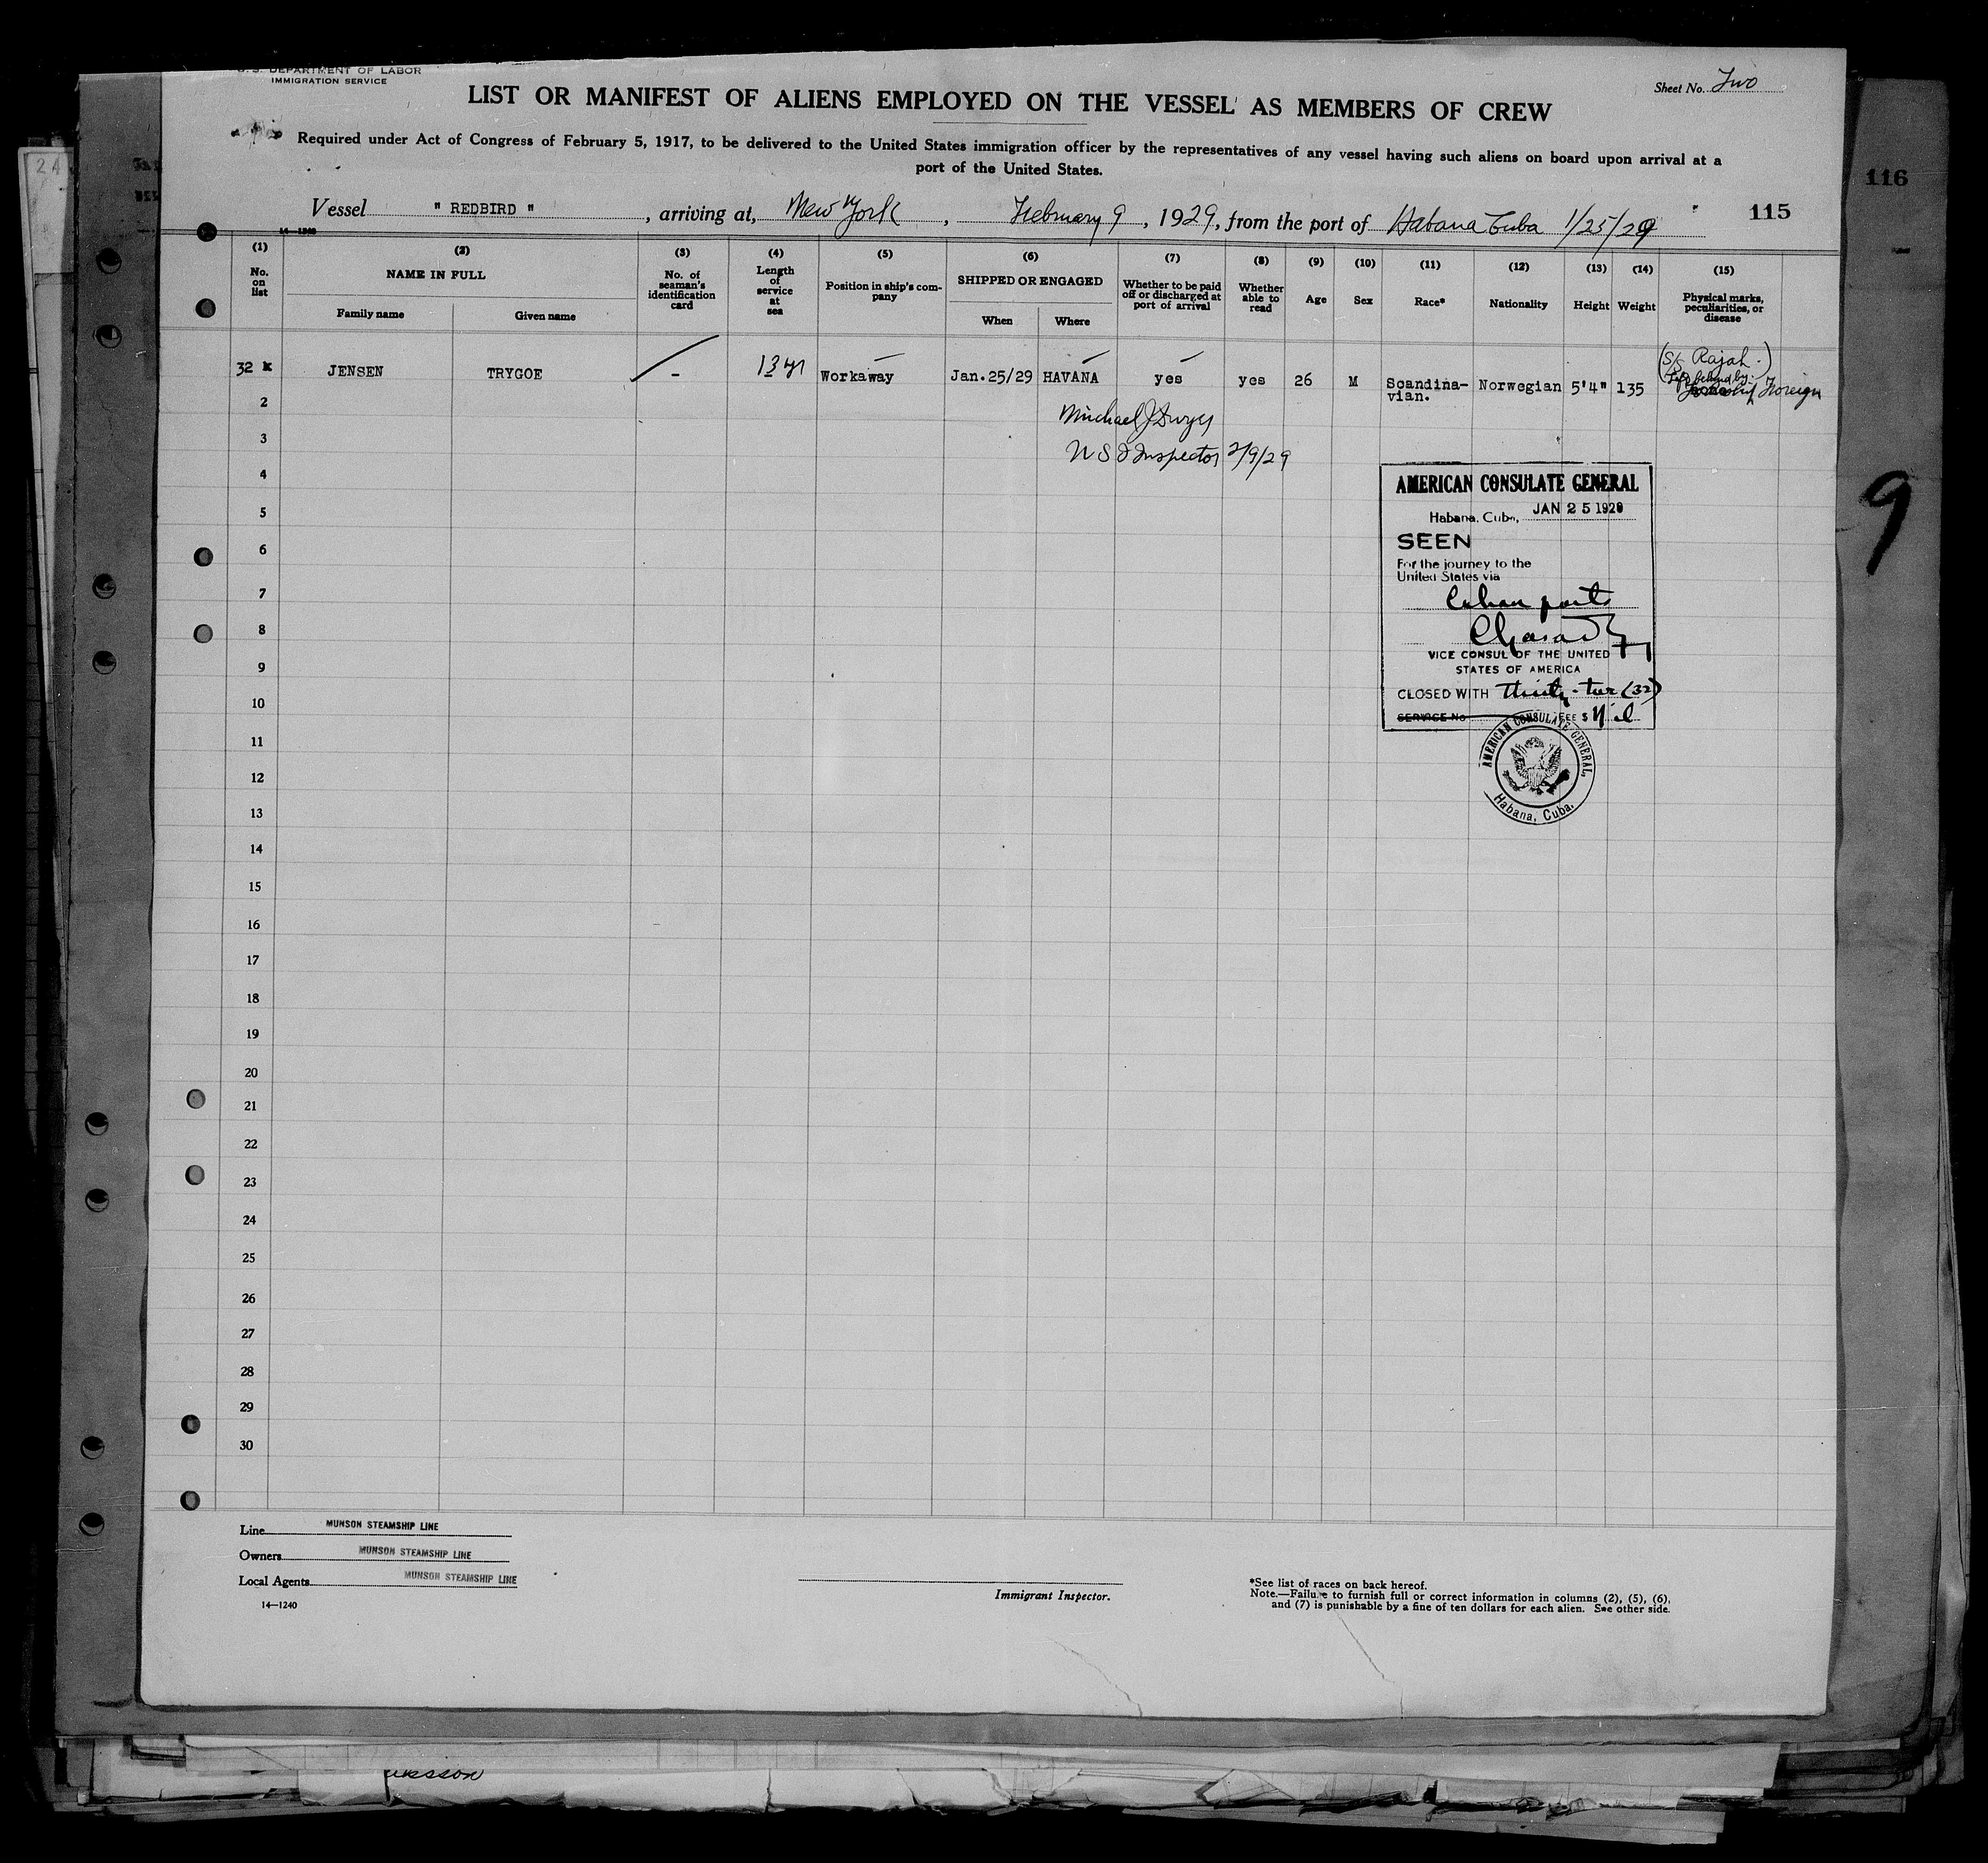 U. S. DEPARTMENT OF LABOR
IMMIGRATION SERVICE
Sheet No. Two
LIST OR MANIFEST OF ALIENS EMPLOYED ON THE VESSEL AS MEMBERS OF CREW
Required under Act of Congress of February 5, 1917, to be delivered to the United States immigration officer by the representatives of any vessel having such aliens on board upon arrival at a
port of the United States.
Vessel " REDBIRD ", arriving at, New York, February 9, 1929, from the port of Habana Cuba 1/25/29
115
116
24
14—1240
(1) (2) (3) (4) (5) (6) (7) (8) (9) (10) (11) (12) (13) (14) (15)
No. on list
NAME IN FULL
Family name
Given name
No. of seaman's identification card
Length of service at sea
Position in ship's company
SHIPPED OR ENGAGED
When
Where
Whether to be paid off or discharged at port of arrival
Whether able to read
Age
Sex
Race*
Nationality
Height
Weight
Physical marks, peculiarities, or disease
32 JENSEN TRYGOE - 13 yr Workaway Jan.25/29 HAVANA yes yes 26 M Scandina-vian. Norwegian 5'4" 135
(S/S Rajah.)
Left behind by
Foreign
2
Michael J Dwyer
3
U S I Inspector 2/9/29
4
5
6
7
8
9
10
11
12
13
14
15
16
17
18
19
20
21
22
23
24
25
26
27
28
29
30
AMERICAN CONSULATE GENERAL
Habana, Cuba, JAN 25 1929
SEEN
For the journey to the
United States via
Cuban ports
VICE CONSUL OF THE UNITED
STATES OF AMERICA
CLOSED WITH thirty-two (32)
SERVICE No FEE $ Nil
AMERICAN CONSULATE GENERAL,
Habana, Cuba.
9
Line MUNSON STEAMSHIP LINE
Owners MUNSON STEAMSHIP LINE
Local Agents MUNSON STEAMSHIP LINE
14—1240
Immigrant Inspector.
*See list of races on back hereof.
Note.—Failure to furnish full or correct information in columns (2), (5), (6),
and (7) is punishable by a fine of ten dollars for each alien. See other side.